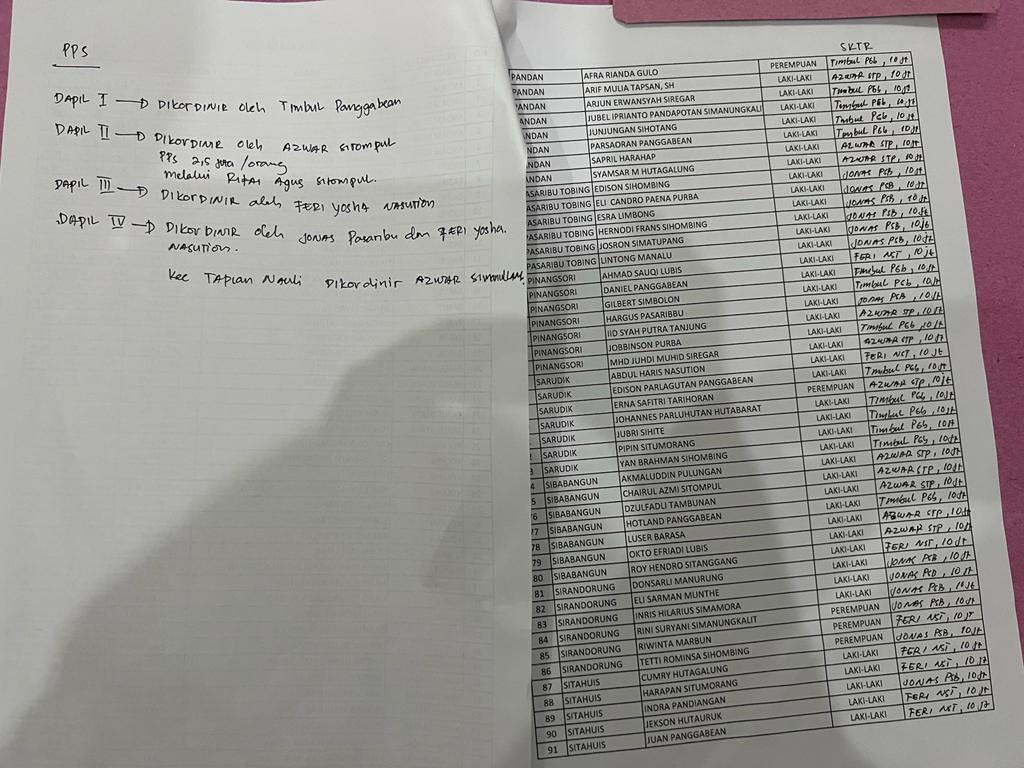 PPS
DAPIL I → DIKORDINIR oleh Timbul Panggabean
DAPIL II → DIKORDINIR oleh AZWAR SITOMPUL
PPS 2,5 juta /orang
melalui RIFAI Agus Sitompul.
DAPIL III → DIKORDINIR oleh FERI YOSHA NASUTION
DAPIL IV → DIKORDINIR oleh JONAS Pasaribu dan FERI Yosha.
NASUTION.
Kec TAPIAN NAULI DIKORDINIR AZWAR
SKTR
PANDAN AFRA RIANDA GULO PEREMPUAN Timbul PGb, 10 jt
PANDAN ARIF MULIA TAPSAN, SH LAKI-LAKI AZWAR STP, 10 jt
ANDAN ARJUN ERWANSYAH SIREGAR LAKI-LAKI Timbul PGb, 10 jt
ANDAN JUBEL IPRIANTO PANDAPOTAN SIMANUNGKALI LAKI-LAKI Timbul PGb, 10 jt
ANDAN JUNJUNGAN SIHOTANG LAKI-LAKI Timbul PGb, 10 jt
ANDAN PARSAORAN PANGGABEAN LAKI-LAKI Timbul PGb, 10 jt
NDAN SAPRIL HARAHAP LAKI-LAKI AZWAR STP, 10 jt
ANDAN SYAMSAR M HUTAGALUNG LAKI-LAKI AZWAR STP, 10 jt
ASARIBU TOBING EDISON SIHOMBING LAKI-LAKI JONAS PSB, 10 jt
ASARIBU TOBING ELI CANDRO PAENA PURBA LAKI-LAKI JONAS PSB, 10 jt
PASARIBU TOBING ESRA LIMBONG LAKI-LAKI JONAS PSB, 10 jt
PASARIBU TOBING HERNODI FRANS SIHOMBING LAKI-LAKI JONAS PSB, 10 jt
PASARIBU TOBING JOSRON SIMATUPANG LAKI-LAKI JONAS PSB, 10 jt
PASARIBU TOBING LINTONG MANALU LAKI-LAKI JONAS PSB, 10 jt
PINANGSORI AHMAD SAUQI LUBIS LAKI-LAKI FERI NST, 10 jt
PINANGSORI DANIEL PANGGABEAN LAKI-LAKI Timbul PGb, 10 jt
PINANGSORI GILBERT SIMBOLON LAKI-LAKI Timbul PGb, 10 jt
PINANGSORI HARGUS PASARIBBU LAKI-LAKI JONAS PSB, 10 jt
PINANGSORI IID SYAH PUTRA TANJUNG LAKI-LAKI AZWAR STP, 10 jt
PINANGSORI JOBBINSON PURBA LAKI-LAKI Timbul PGb, 10 jt
PINANGSORI MHD JUHDI MUHID SIREGAR LAKI-LAKI AZWAR STP, 10 jt
SARUDIK ABDUL HARIS NASUTION LAKI-LAKI FERI NST, 10 jt
SARUDIK EDISON PARLAGUTAN PANGGABEAN LAKI-LAKI Timbul PGb, 10 jt
SARUDIK ERNA SAFITRI TARIHORAN PEREMPUAN AZWAR STP, 10 jt
SARUDIK JOHANNES PARLUHUTAN HUTABARAT LAKI-LAKI Timbul PGb, 10 jt
SARUDIK JUBRI SIHITE LAKI-LAKI Timbul PGb, 10 jt
SARUDIK PIPIN SITUMORANG LAKI-LAKI Timbul PGb, 10 jt
SARUDIK YAN BRAHMAN SIHOMBING LAKI-LAKI Timbul PGb, 10 jt
4 SIBABANGUN AKMALUDDIN PULUNGAN LAKI-LAKI AZWAR STP, 10 jt
5 SIBABANGUN CHAIRUL AZMI SITOMPUL LAKI-LAKI AZWAR STP, 10 jt
76 SIBABANGUN DZULFADU TAMBUNAN LAKI-LAKI AZWAR STP, 10 jt
77 SIBABANGUN HOTLAND PANGGABEAN LAKI-LAKI Timbul PGb, 10 jt
78 SIBABANGUN LUSER BARASA LAKI-LAKI AZWAR STP, 10 jt
79 SIBABANGUN OKTO EFRIADI LUBIS LAKI-LAKI AZWAR STP, 10 jt
80 SIBABANGUN ROY HENDRO SITANGGANG LAKI-LAKI FERI NST, 10 jt
81 SIRANDORUNG DONSARLI MANURUNG LAKI-LAKI JONAS PSB, 10 jt
82 SIRANDORUNG ELI SARMAN MUNTHE LAKI-LAKI JONAS PSB, 10 jt
83 SIRANDORUNG INRIS HILARIUS SIMAMORA LAKI-LAKI JONAS PSB, 10 jt
84 SIRANDORUNG RINI SURYANI SIMANUNGKALIT PEREMPUAN JONAS PSB, 10 jt
85 SIRANDORUNG RIWINTA MARBUN PEREMPUAN FERI NST, 10 jt
86 SIRANDORUNG TETTI ROMINSA SIHOMBING PEREMPUAN JONAS PSB, 10 jt
87 SITAHUIS CUMRY HUTAGALUNG LAKI-LAKI FERI NST, 10 jt
88 SITAHUIS HARAPAN SITUMORANG LAKI-LAKI FERI NST, 10 jt
89 SITAHUIS INDRA PANDIANGAN LAKI-LAKI JONAS PSB, 10 jt
90 SITAHUIS JEKSON HUTAURUK LAKI-LAKI FERI NST, 10 jt
91 SITAHUIS JUAN PANGGABEAN LAKI-LAKI FERI NST, 10 jt